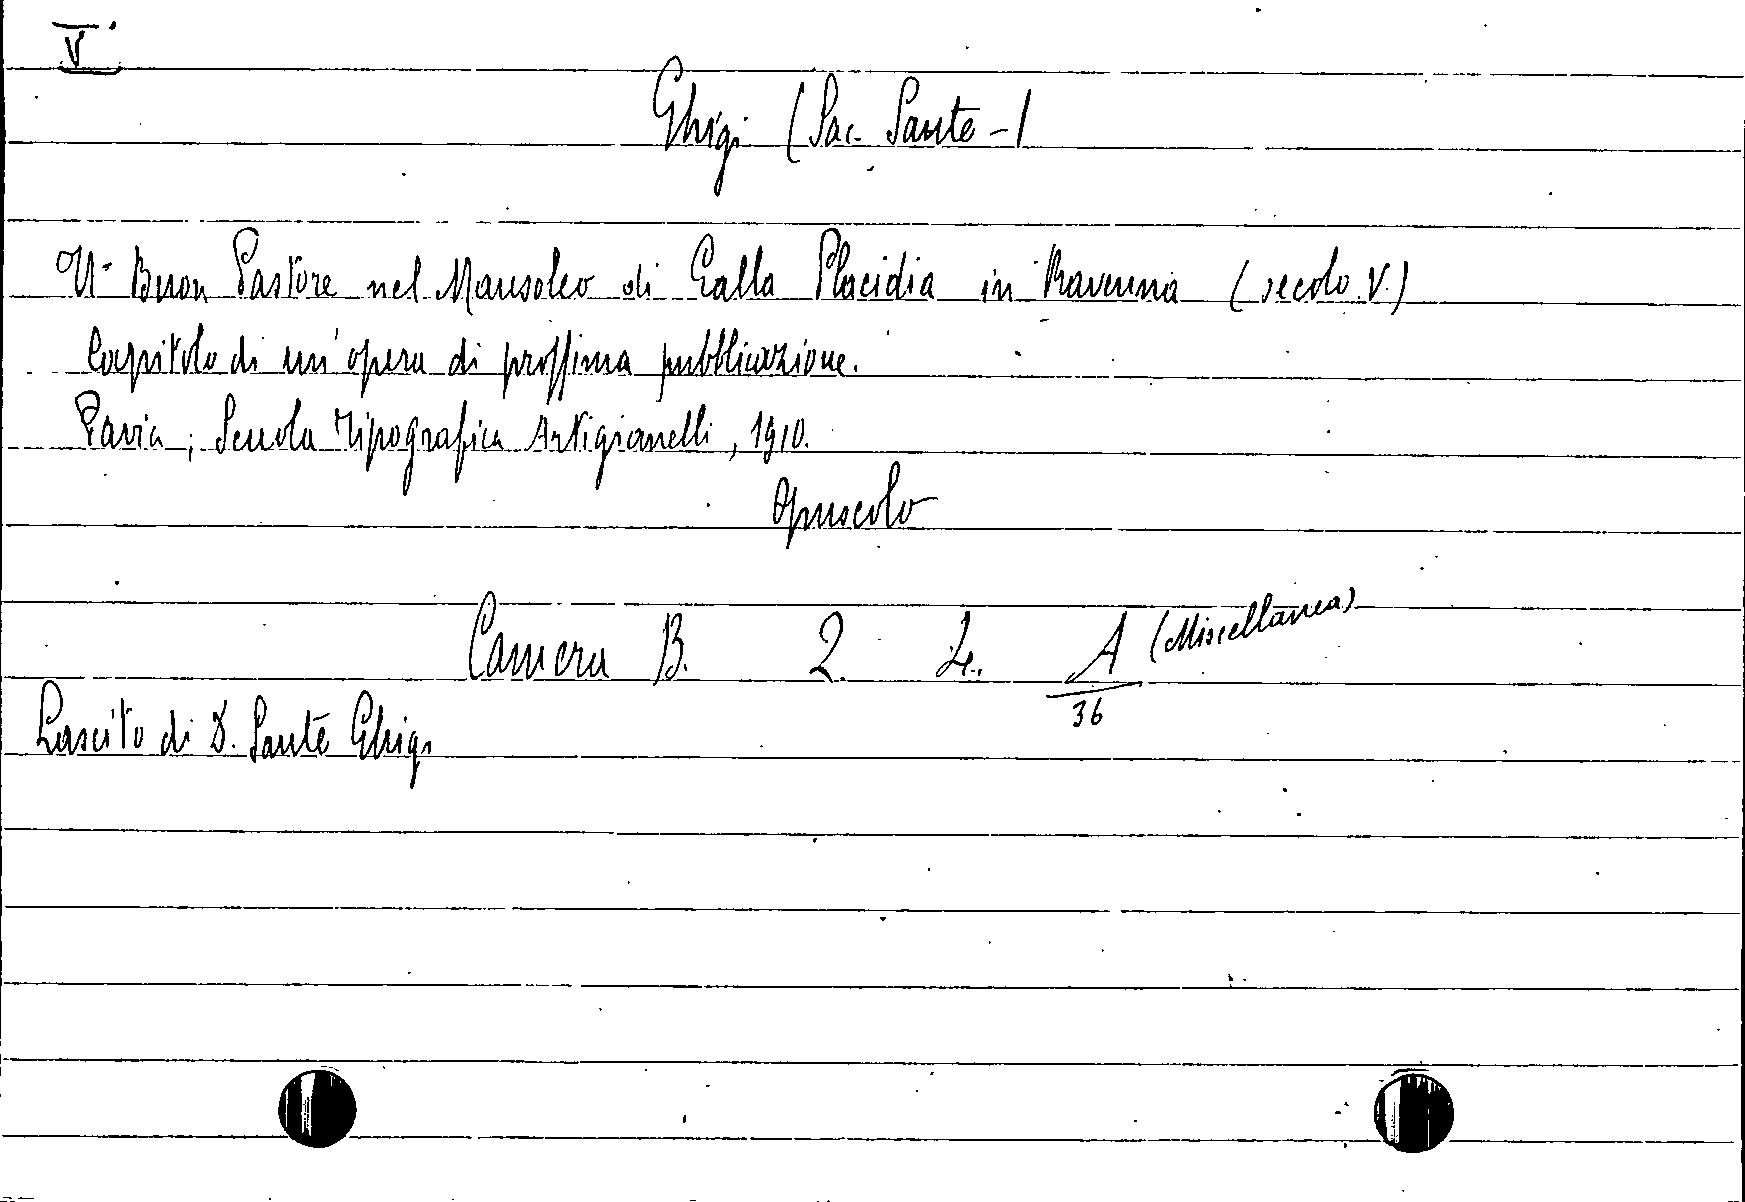 V
Ghigi (Sac. Sante-)
Il Buon Pastore nel Mausoleo di Galla Placidia in Ravenna (secolo V.)
Capitolo di un'opera di prossima pubblicazione.
Pavia, Scuola Tipografica Artigianelli, 1910.
Opuscolo
Camera B. 2. 4. A (Miscellanea)
36
Lascito di D. Sante Ghigi